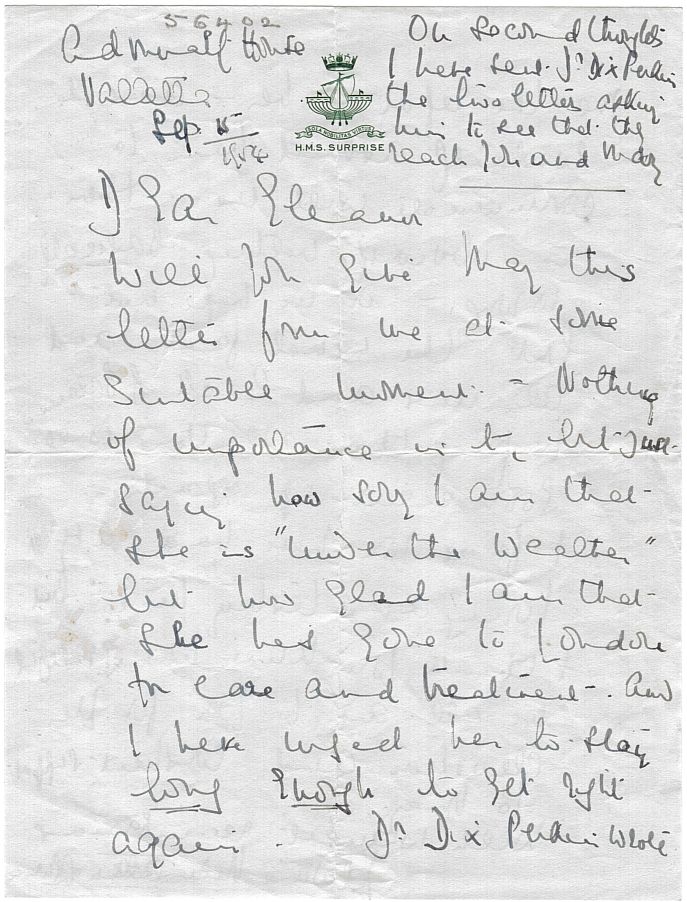 56402
Admiralty House
Valletta
Sep. 15
1954
SOLA NOBILITAS VIRTUS
H.M.S. SURPRISE
On second thoughts
I have sent Dr Dix Perkin
the two letters asking
him to see that they
reach you and May
Dear Eleanor
Will you give May this
letter from me at some
suitable moment. - Nothing
of importance in it, but just
saying how sorry I am that
she is "under the weather"
but how glad I am that
she has gone to London
for care and treatment. And
I have urged her to stay
long enough to get right
again. Dr Dix Perkin wrote